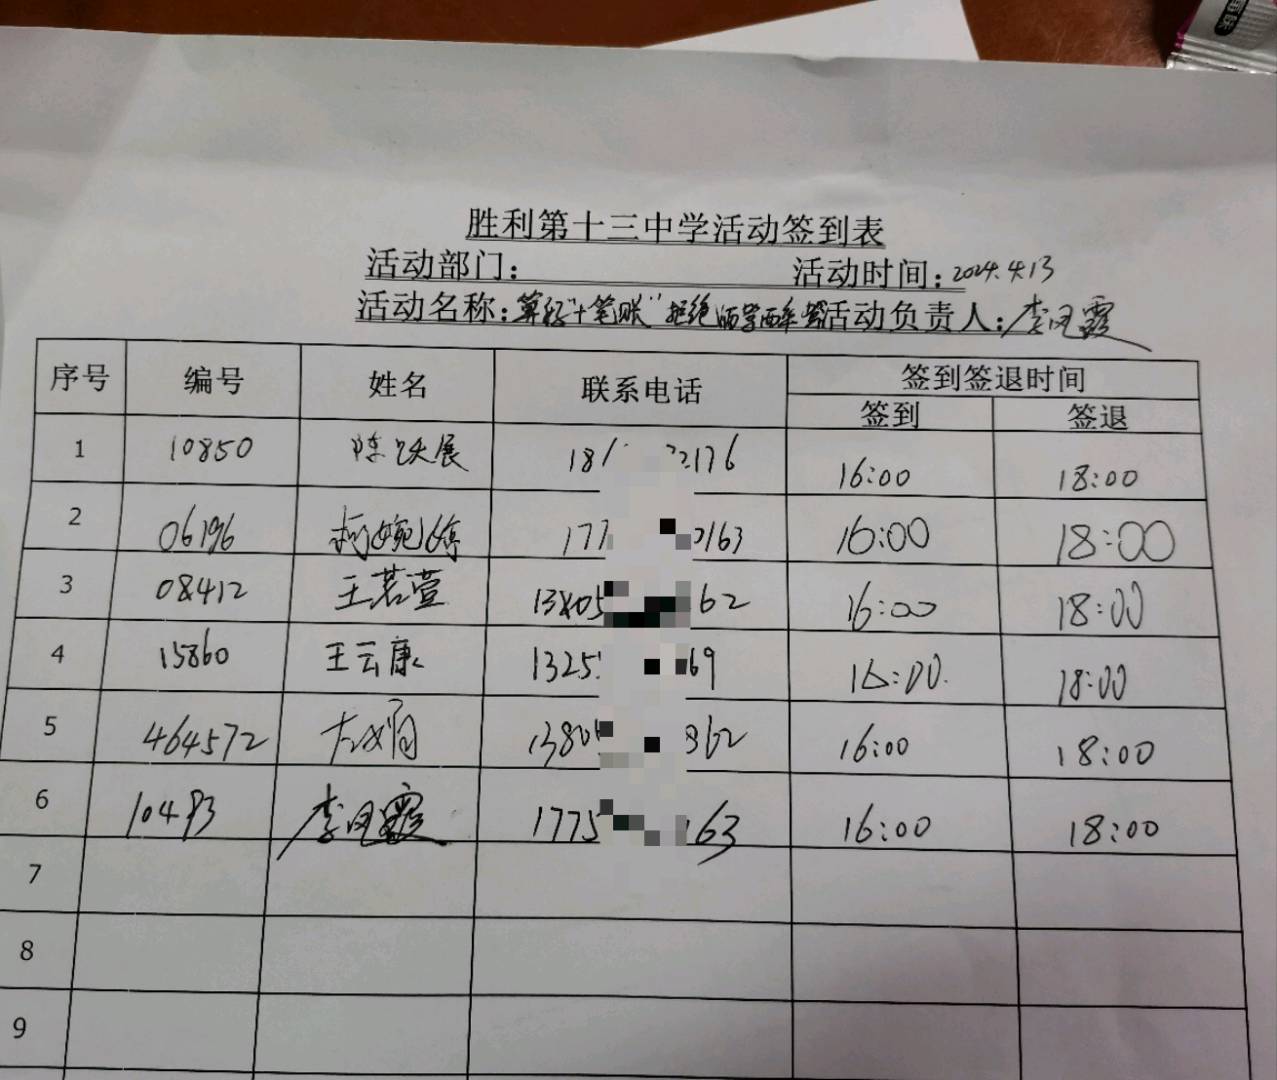 胜利第十三中学活动签到表
活动部门: 活动时间:2024.4.13
活动名称:算好"十笔账"拒绝酒驾醉驾 活动负责人:李凤霞
序号 编号 姓名 联系电话 签到签退时间
签到 签退
1 10850 陈跃展 18 2176 16:00 18:00
2 06196 柯婉婷 177 0163 16:00 18:00
3 08412 王若萱 13405 62 16:00 18:00
4 15860 王云康 1325 69 16:00 18:00
5 464572 1380 362 16:00 18:00
6 10493 李凤霞 1775 163 16:00 18:00
7
8
9